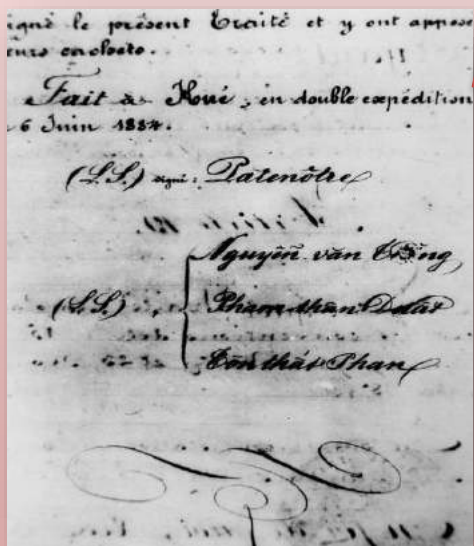 igné le présent Traité et y ont apposé
eurs cachets.
Fait à Hué, en double expédition
6 Juin 1884.
(L.S.) signé: Patenôtre
Nguyên van Tuong
(L.S.)
Pham thân Duât
Tôn thât Phan